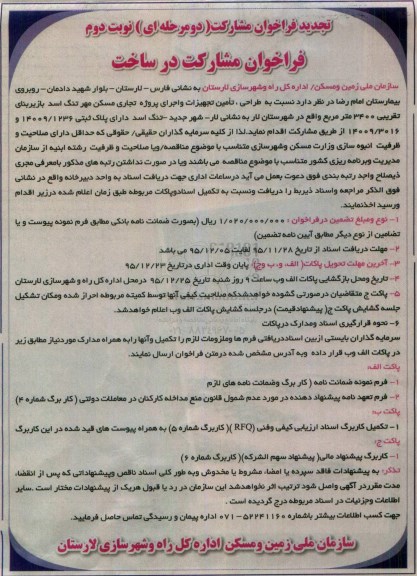 تجدید فراخوان مشارکت( دومرحله ای ) نوبت دوم
فراخوان مشارکت در ساخت
سازمان ملی زمین ومسکن/ اداره کل راه وشهرسازی لارستان به نشانی فارس - لارستان - بلوار شهید دادمان - روبروی
بیمارستان امام رضا در نظر دارد نسبت به طراحی ، تأمین تجهیزات واجرای پروژه تجاری مسکن مهر تنگ اسد بازیربنای
تقریبی ۳۴۰۰ متر مربع واقع در شهرستان لار به نشانی لار- شهر جدید -تنگ اسد دارای پلاک ثبتی ۱۴۰۰۹/۱۲۳۶ و
۱۴۰۰۹/۳۰۱۶ از طریق مشارکت اقدام نماید.لذا از کلیه سرمایه گذاران حقیقی/ حقوقی که حداقل دارای صلاحیت و
ظرفیت انبوه سازی وزارت مسکن وشهرسازی متناسب با موضوع مناقصه/ویا صلاحیت و ظرفیت رشته ابنیه از سازمان
مدیریت وبرنامه ریزی کشور متناسب با موضوع مناقصه می باشند ویا در صورت نداشتن رتبه های مذکور بامعرفی مجری
ذیصلاح واجد رتبه بندی فوق دعوت بعمل می آید درساعات اداری جهت دریافت اسناد به واحد دبیرخانه واقع در نشانی
فوق الذکر مراجعه واسناد ذیربط را دریافت ونسبت به تکمیل اسنادوپاکات مربوطه طبق زمان اعلام شده درزیر اقدام
ورسید اخذنمایند.
۱- نوع ومبلغ تضمین درفراخوان : ۱/۰۲۰/۰۰۰/۰۰۰ ریال (بصورت ضمانت نامه بانکی مطابق فرم نمونه پیوست و یا
تضامین از نوع دیگر مطابق آیین نامه تضمین)
۲- مهلت دریافت اسناد از تاریخ ۹۵/۱۱/۲۸ لغایت ۹۵/۱۲/۰۵ می باشد
۳- آخرین مهلت تحویل پاکات( الف، و، ب وج) پایان وقت اداری درتاریخ ۹۵/۱۲/۲۳
۴- تاریخ ومحل بازگشایی پاکات الف وب ساعت ۹ روز شنبه تاریخ ۹۵/۱۲/۲۵ درمحل اداره کل راه و شهرسازی لارستان
۵- پاکت ج متقاضیان درصورتی گشوده خواهدشدکه صلاحیت کیفی آنها توسط کمیته مربوطه احراز شده ومکان تشکیل
جلسه گشایش پاکت ج( پیشنهادقیمت) درجلسه گشایش پاکات الف وب اعلام خواهدشد.
۶- نحوه قرارگیری اسناد ومدارک درپاکات
سرمایه گذاران بایستی ازبین اسناددریافتی فرم ها وملزومات لازم را تکمیل وآنها رابه همراه مدارک موردنیاز مطابق زیر
در پاکات الف وب قرار داده وبه آدرس مشخص شده درمتن فراخوان ارسال نمایند.
پاکات الف:
۱- فرم نمونه ضمانت نامه ( کار برگ وضمانت نامه های لازم
۲- فرم تعهد نامه پیشنهاد دهنده در مورد عدم شمول قانون منع مداخله کارکنان در معاملات دولتی ( کار برگ شماره ۴)
پاکت ب:
۱ - تکمیل کاربرگ اسناد ارزیابی کیفی وفنی (RFQ )( کاربرگ شماره ۵) به همراه پیوست های قید شده در این کاربرگ
پاکت ج:
۱- کاربرگ پیشنهاد مالی( پیشنهاد سهم الشرکه)( کاربرگ شماره ۶)
تذکر: به پیشنهادات فاقد سپرده یا امضا، مشروط یا مخدوش وبه طور کلی اسناد ناقص وپیشنهاداتی که پس از انقضاء،
مدت مقرردر آگهی واصل شود ترتیب اثر نخواهدشد این سازمان در رد یا قبول هریک از پیشنهادات مختار است .سایر
اطلاعات وجزئیات در اسناد مربوطه درج گردیده است .
جهت کسب اطلاعات بیشتر باشماره ۵۲۲۴۱۱۶۰-۰۷۱ اداره پیمان و رسیدگی تماس حاصل فرمایید.
سازمان ملی زمین ومسکن اداره کل راه وشهرسازی لارستان